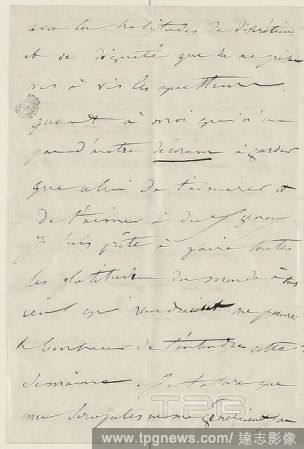 avec les habitudes de discrétion
et de dignité que tu as prises
vis à vis les quetteurs.
quant à moi qui n'ai
pas d'autre decorum à garder
que celui de t'admirer et
de t'aimer à deux genoux
je suis prête à faire toutes
les platitudes du monde à tous
ceux qui voudraient me faire
le bonheur de t'entendre cette
semaine. Je t'assure que
mes scrupules ne me
TPG
www.tpgnews.com/達志影像